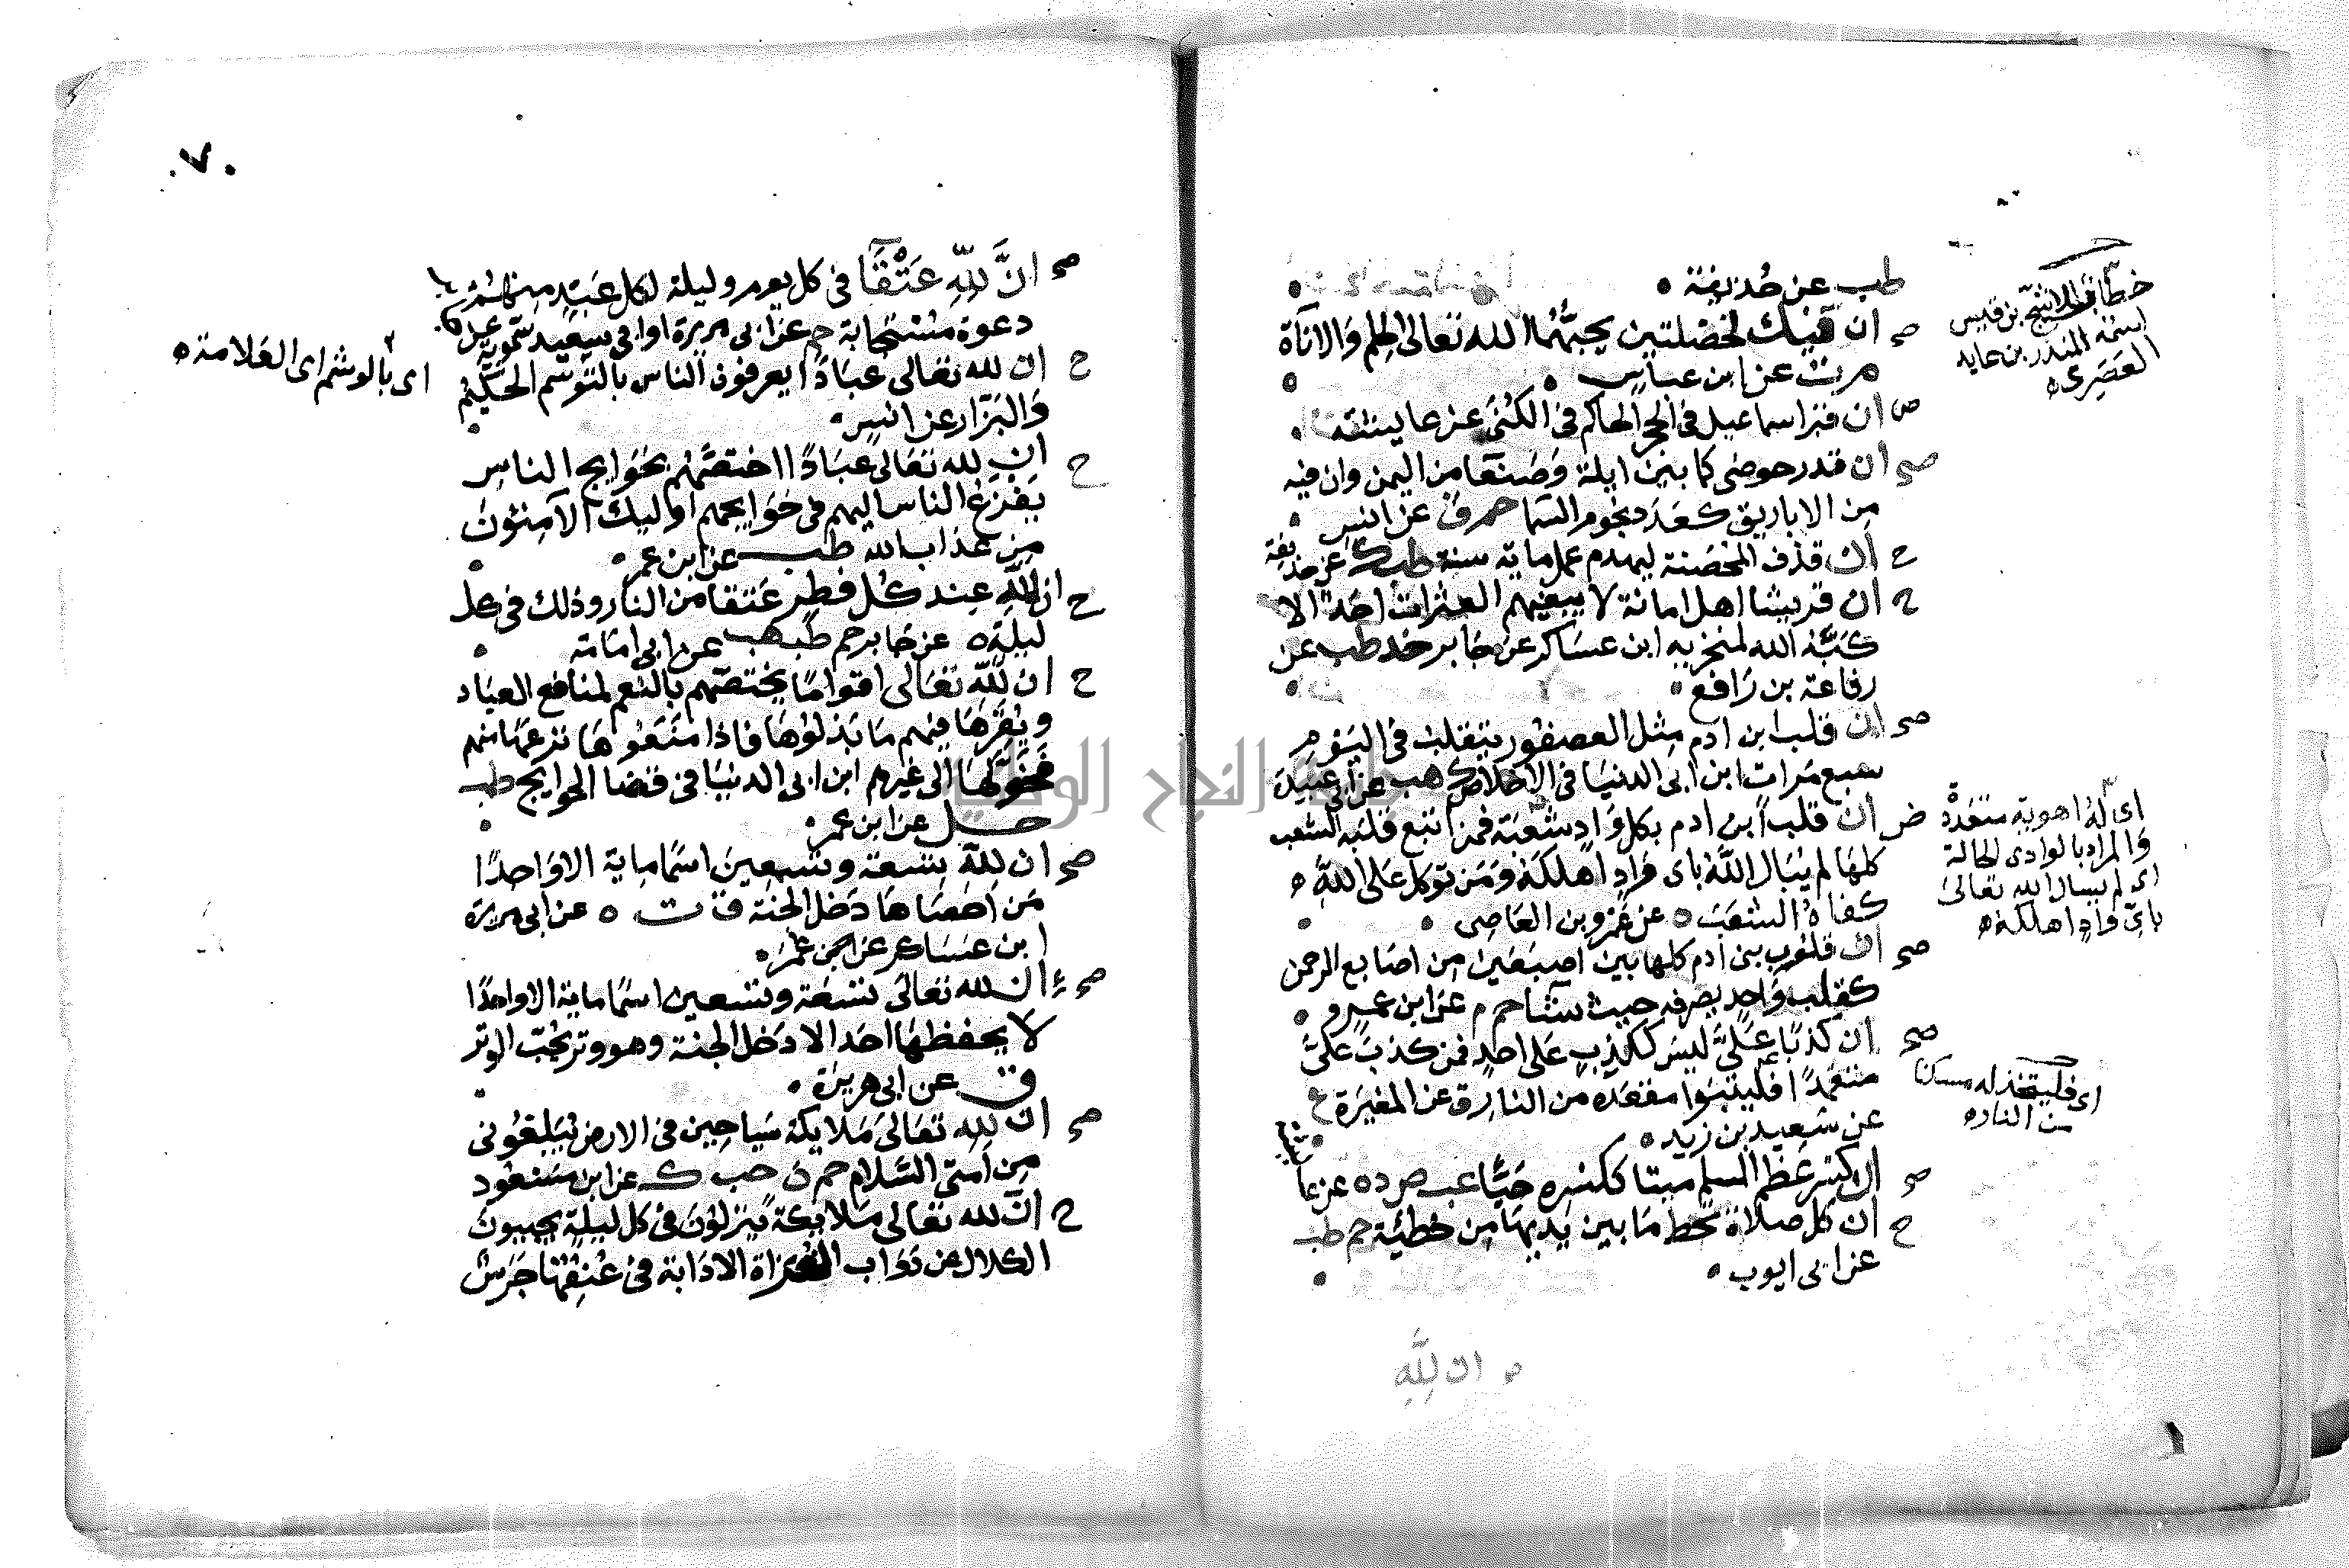 طب عن حذيفة
صح ان فيك لخصلتين يحبهما الله تعالى الحلم والاناة
م ت عن ابن عباس
ض ان قبر اسماعيل فى الحجر الحاكم فى الكنى عن عايشة
صح ان قدر حوضى كما بين ايلة وصنعا من اليمن وان فيه
من الاباريق كعدد نجوم السما حم ق عن انس
ح ان قذف المحصنة ليهدم عمل ماية سنة طب ك عن حذيفة
ح ان قريشا اهل امانة لا يبغيهم العثرات احد الا
كبه الله لمنخريه ابن عساكر عن جابر خد طب عن
رفاعة بن رافع
صح ان قلب ابن ادم مثل العصفور يتقلب فى اليوم
سبع مرات ابن ابى الدنيا فى الاخلاص ك هب عن ابى عبيدة
ض ان قلب ابن ادم بكل واد شعبة فمن اتبع قلبه الشعب
كلها لم يبال الله باى واد اهلكه ومن توكل على الله
كفاه الشعب ه عن عمرو بن العاصى
صح ان قلوب بنى ادم كلها بين اصبعين من اصابع الرحمن
كقلب واحد يصرفه حيث شا حم م عن ابن عمرو
صح ان كذبا عليّ ليس ككذب على احد فمن كذب عليّ
متعمدا فليتبوا مقعده من النار ق عن المغيرة ع
عن سعيد بن زيد
صح ان كسر عظم المسلم ميتا ككسره حيا عب ص د ه عن عا
ح ان كل صلاة تحط ما بين يديها من خطيئة حم طب
عن ابى ايوب
صح ان لله
خطابا للاشج بن قيس
اسمه المنذر بن عايد
العصرى
اى له اهوية متعددة
والمراد بالوادى الحالة
اى لم يبال الله تعالى
باى واد اهلكه
اى فليتخذ له مسكنا
من النار
٧٠
صح ان لله عتقا فى كل يوم وليلة لكل عبد منهم
دعوة مستجابة حم عن ابى هريرة او ابى سعيد سمويه عن
ح ان لله تعالى عبادا يعرفون الناس بالتوسم الحكيم
والبزار عن انس
ح ان لله تعالى عبادا اختصهم بحوايج الناس
يفزع الناس اليهم فى حوايجهم اوليك الآمنون
من عذاب الله طب عن ابن عمر
ح ان لله عند كل فطر عتقا من النار وذلك فى كل
ليلة ه عن جابر حم طب هب عن ابى امامة
ح ان لله تعالى اقواما يختصهم بالنعم لمنافع العباد
ويقرها فيهم ما بذلوها فاذا منعوها نزعها منهم
فحولها الى غيرهم ابن ابى الدنيا فى قضا الحوايج طب
حل عن ابن عمر
صح ان لله تسعة وتسعين اسما ماية الا واحدا
من احصاها دخل الجنة ق ت ه عن ابى هريرة
ابن عساكر عن عمر
صح ان لله تعالى تسعة وتسعين اسما ماية الا واحدا
لا يحفظها احد الا دخل الجنة وهو وتر يحب الوتر
ق عن ابى هريرة
صح ان لله تعالى ملايكة سياحين فى الارض يبلغونى
من امتى السلام حم ن حب ك عن ابن مسعود
ح ان لله تعالى ملايكة ينزلون فى كل ليلة يحبسون
الكلال عن دواب الغزاة الا دابة فى عنقها جرس
اى بالوشم اى العلامة
جامعة النجاح الوطنية